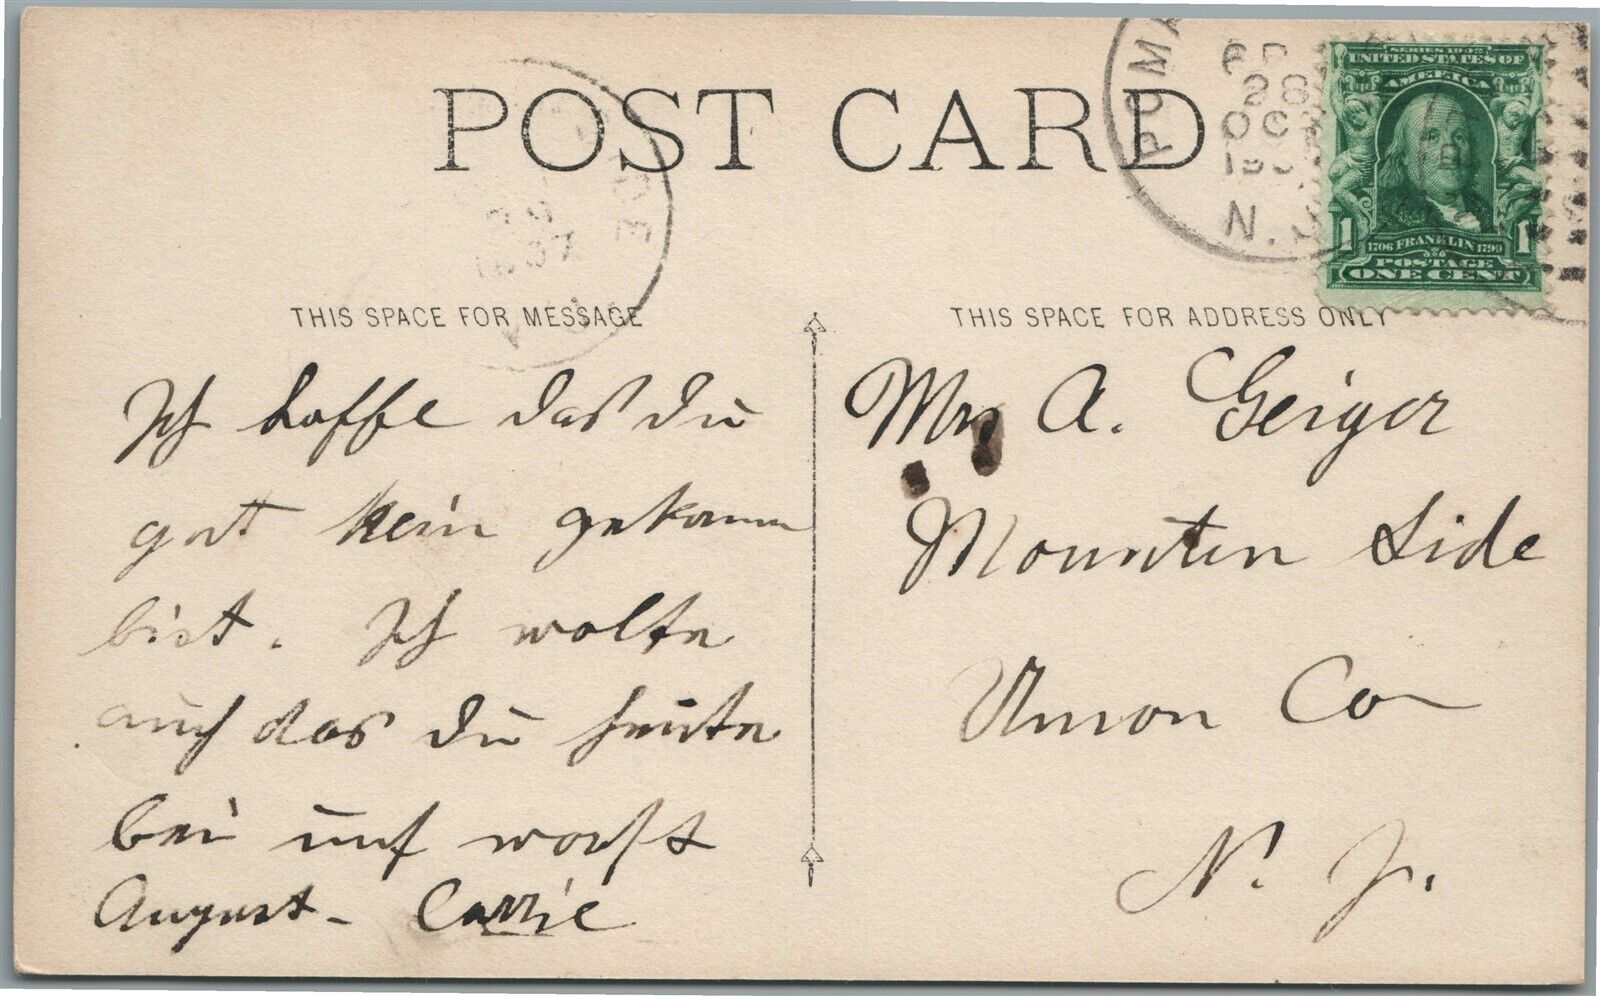 POST CARD
POMA
28
OC
N.J.
SERIES 1902
UNITED STATES OF
AMERICA
1 1706 FRANKLIN 1790 1
POSTAGE
ONE CENT
THIS SPACE FOR MESSAGE
THIS SPACE FOR ADDRESS ONLY
Ich hoffe das du
gut heim gekommen
bist. Ich wollte
auch das du heute
bei uns warst
August - Carrie
Mrs A. Geiger
Mountin Side
Union Co
N. J.